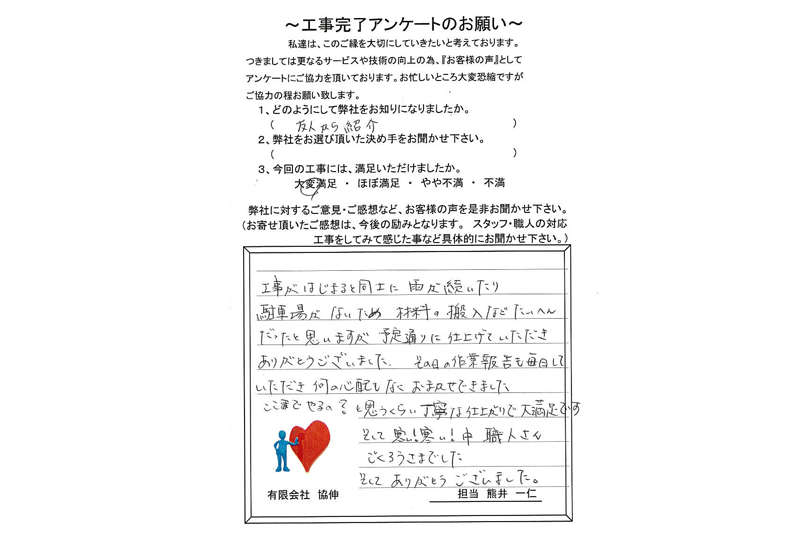 ～工事完了アンケートのお願い～
私達は、このご縁を大切にしていきたいと考えております。
つきましては更なるサービスや技術の向上の為、『お客様の声』として
アンケートにご協力を頂いております。お忙しいところ大変恐縮ですが
ご協力の程お願い致します。
１、どのようにして弊社をお知りになりましたか。
（ 友人から紹介 ）
２、弊社をお選び頂いた決め手をお聞かせ下さい。
（ ）
３、今回の工事には、満足いただけましたか。
大変満足 ・ ほぼ満足 ・ やや不満 ・ 不満
弊社に対するご意見・ご感想など、お客様の声を是非お聞かせ下さい。
（お寄せ頂いたご感想は、今後の励みとなります。 スタッフ・職人の対応
工事をしてみて感じた事など具体的にお聞かせ下さい。）
工事がはじまると同士に 雨が続いたり
駐車場がないため 材料の搬入などたいへん
だったと思いますが 予定通りに仕上げていただき
ありがとうございました. その日の作業報告も毎日して
いただき 何の心配もなく おまかせできました
ここまでやるの？と思うくらい丁寧な仕上がりで大満足です
そして 寒い！寒い！中 職人さん
ごくろうさまでした
そして ありがとう ございました。
有限会社 協伸
担当 熊井 一仁